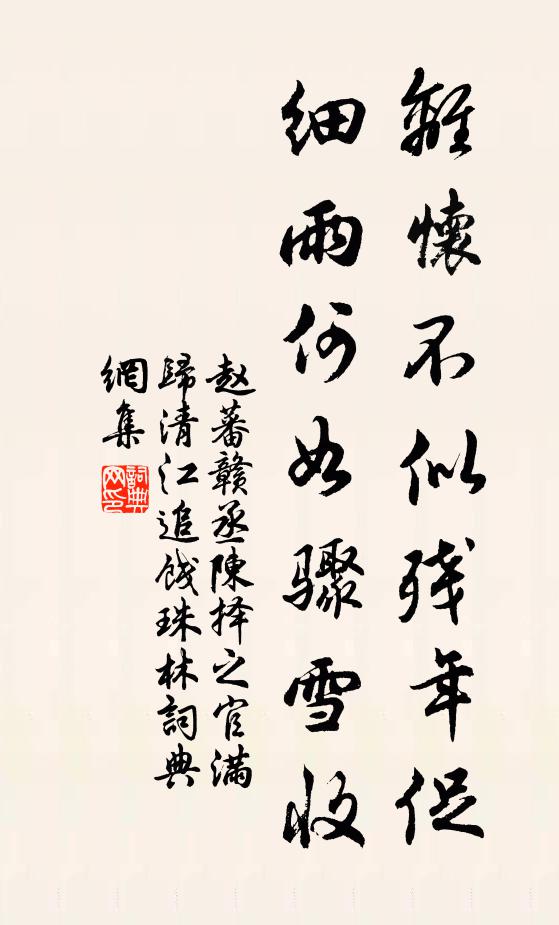 離懷不似残年促
細雨何如驟雪收
赵蕃贛丞陳择之官滿
歸清江追餞珠林詞典
網集
詞典
网印